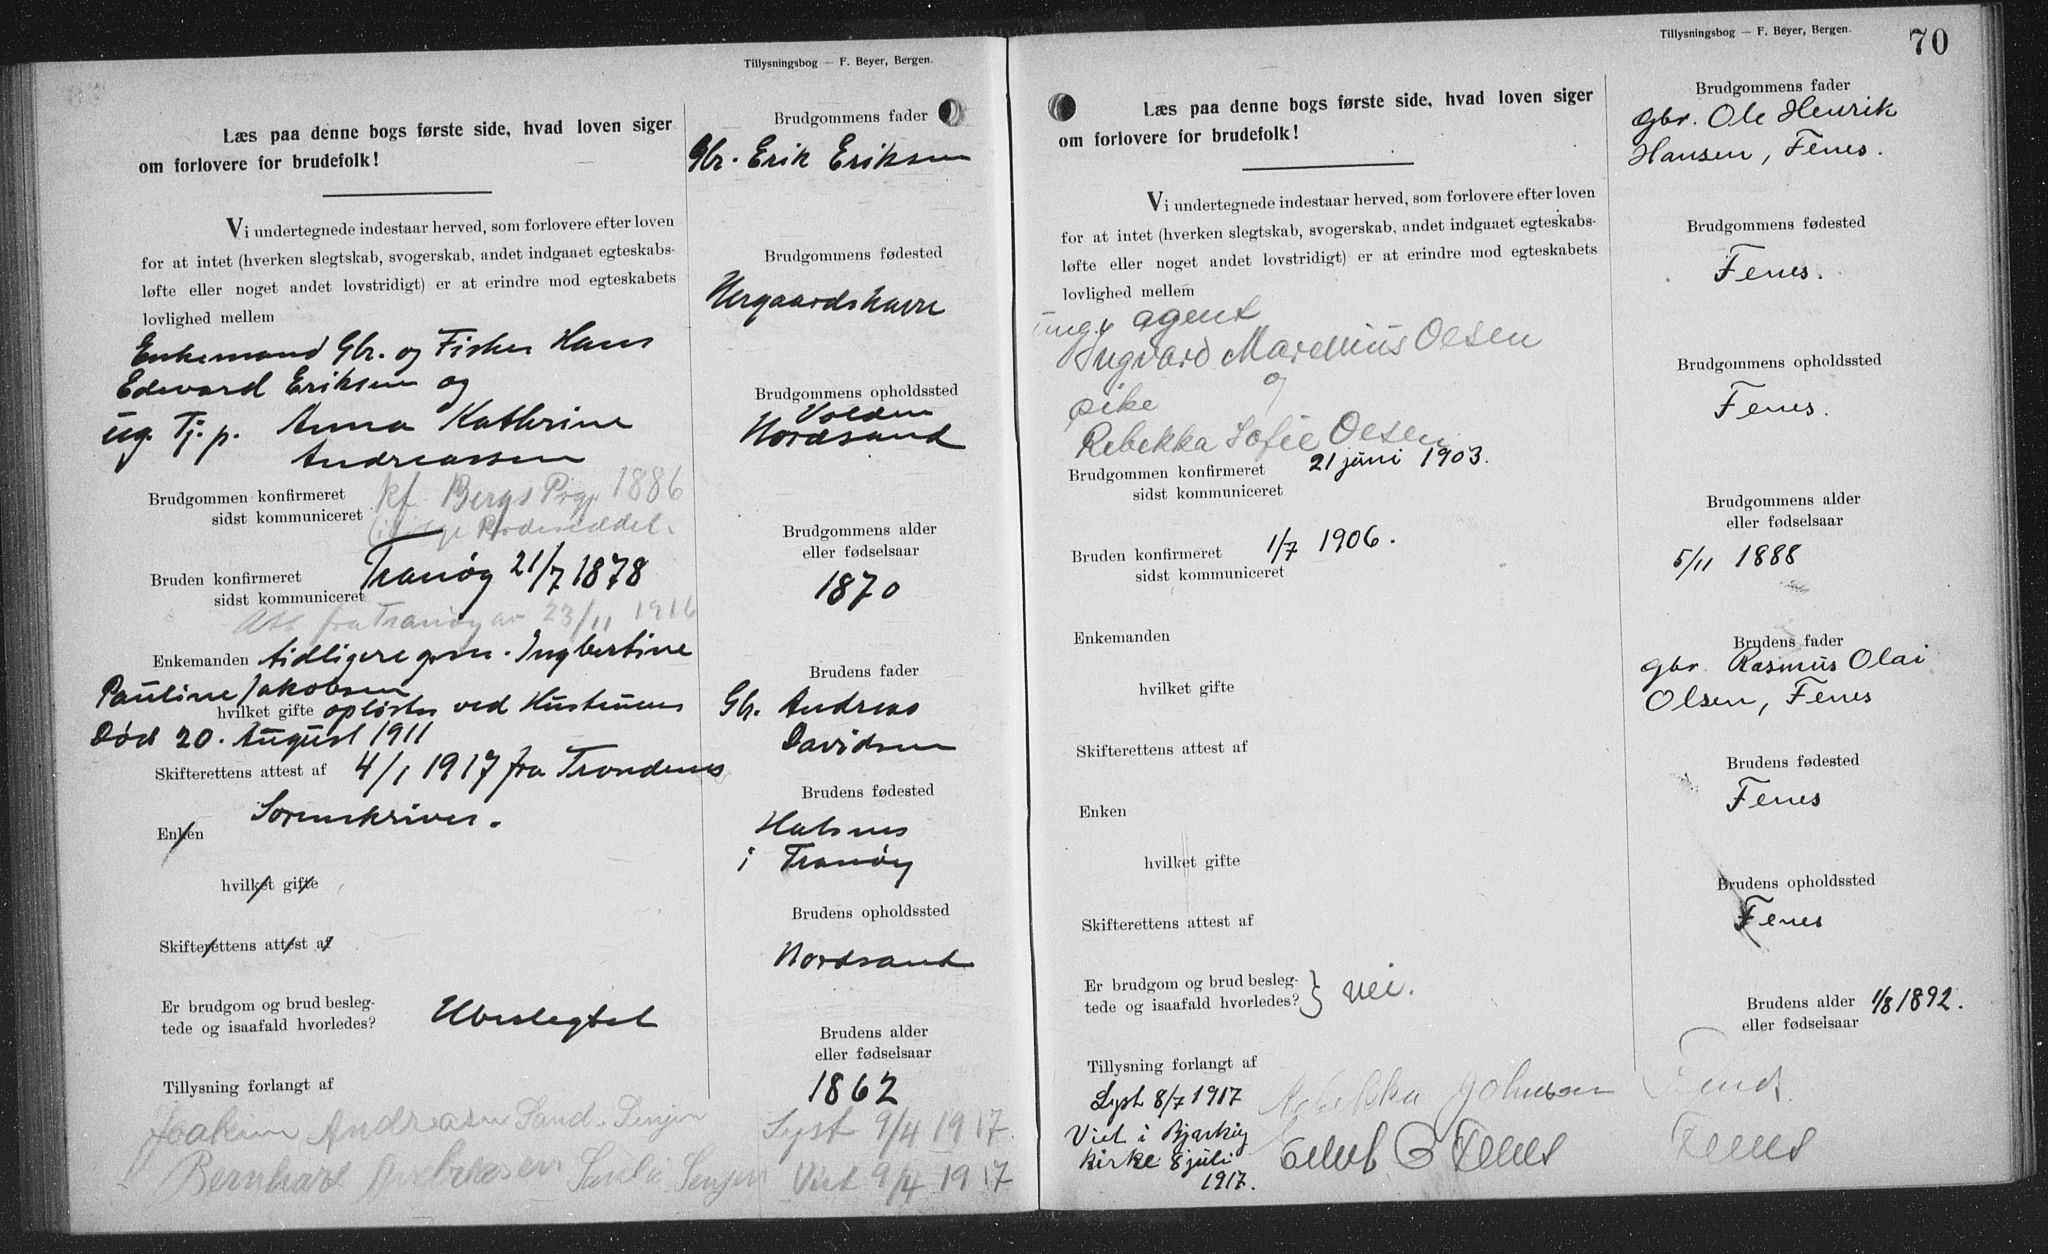 Tillysningsbog — F. Beyer, Bergen.
Læs paa denne bogs første side, hvad loven siger
om forlovere for brudefolk!
Vi undertegnede indestaar herved, som forlovere efter loven
for at intet (hverken slegtskab, svogerskab, andet indgaaet egteskabs-
løfte eller noget andet lovstridigt) er at erindre mod egteskabets
lovlighed mellem
Enkemand Gbr. og Fisker Hans
Edevard Eriksen og
ug. Tj. p. Anna Kathrine
Andreassen
Brudgommen konfirmeret kf Bergs Prgj 1886
sidst kommuniceret
Bruden konfirmeret Tranøy 21/7 1878
sidst kommuniceret
Att fra Tranøy av 23/11 1916
Enkemanden tidligere gm. Ingbertine
Pauline Jakobsen
hvilket gifte opløstes ved Hustruens
Død 20. August 1911
Skifterettens attest af 4/1 1917 fra Trondenes
Sorenskriver.
Enken
hvilket gifte
Skifterettens attest af
Er brudgom og brud besleg-
tede og isaafald hvorledes? Ubeslegtet
Tillysning forlangt af
Joakim Andreasen Sand. Senjen
Bernhart Andreasen Senjen
Brudgommens fader
Gbr. Erik Eriksen
Brudgommens fødested
Hergaardshavn
Brudgommens opholdssted
Volden
Nordsand
Brudgommens alder
eller fødselsaar
1870
Brudens fader
Gbr. Andreas
Davidsen
Brudens fødested
Halsnes
i Tranøy
Brudens opholdssted
Nordsand
Brudens alder
eller fødselsaar
1862
Lyst 9/4 1917.
Viet 9/4 1917
Tillysningsbog — F. Beyer, Bergen.
70
Læs paa denne bogs første side, hvad loven siger
om forlovere for brudefolk!
Vi undertegnede indestaar herved, som forlovere efter loven
for at intet (hverken slegtskab, svogerskab, andet indgaaet egteskabs-
løfte eller noget andet lovstridigt) er at erindre mod egteskabets
lovlighed mellem
ungk agent
Ingvard Marenius Olsen
og
pike
Rebekka Sofie Olsen
Brudgommen konfirmeret 21 juni 1903.
sidst kommuniceret
Bruden konfirmeret 1/7 1906.
sidst kommuniceret
Enkemanden
hvilket gifte
Skifterettens attest af
Enken
hvilket gifte
Skifterettens attest af
Er brudgom og brud besleg-
tede og isaafald hvorledes? } nei.
Tillysning forlangt af
Lyst 8/7 1917
Viet i Bjarkøy
kirke 8 juli
1917.
Rebekka Johnsen
Fenes
Fenes
Brudgommens fader
gbr. Ole Henrik
Hansen, Fenes.
Brudgommens fødested
Fenes.
Brudgommens opholdssted
Fenes.
Brudgommens alder
eller fødselsaar
5/11 1888
Brudens fader
gbr Rasmus Olai
Olsen, Fenes
Brudens fødested
Fenes
Brudens opholdssted
Fenes
Brudens alder 1/8 1892.
eller fødselsaar